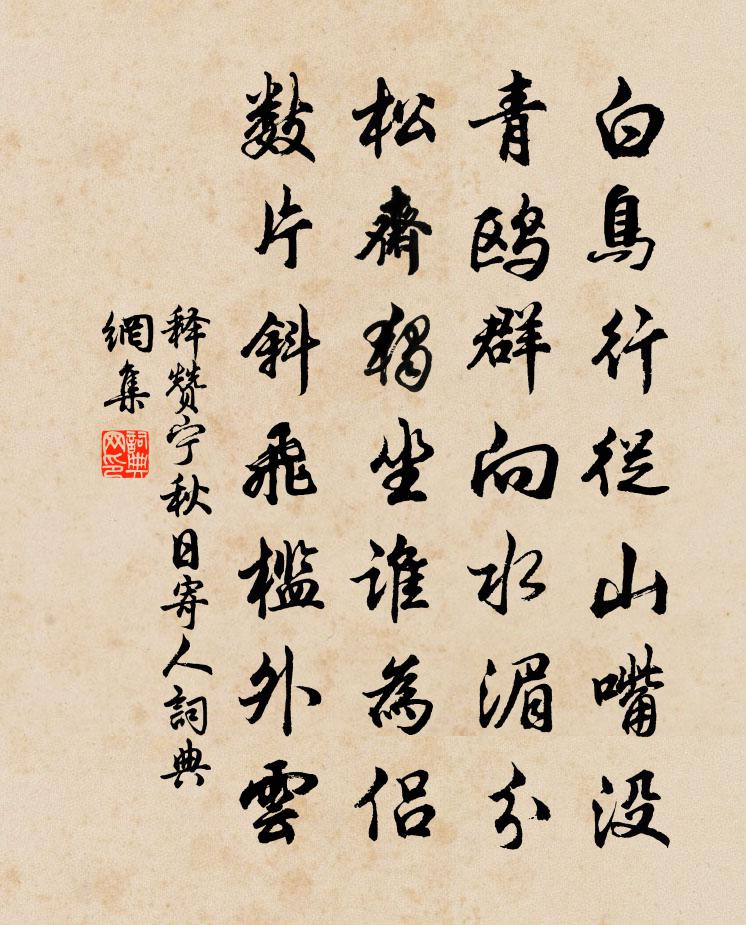 白鳥行從山嘴没
青鸥群向水湄分
松齋獨坐谁為侣
数片斜飛檻外雲
释赞宁秋日寄人詞典
網集
詞典网印